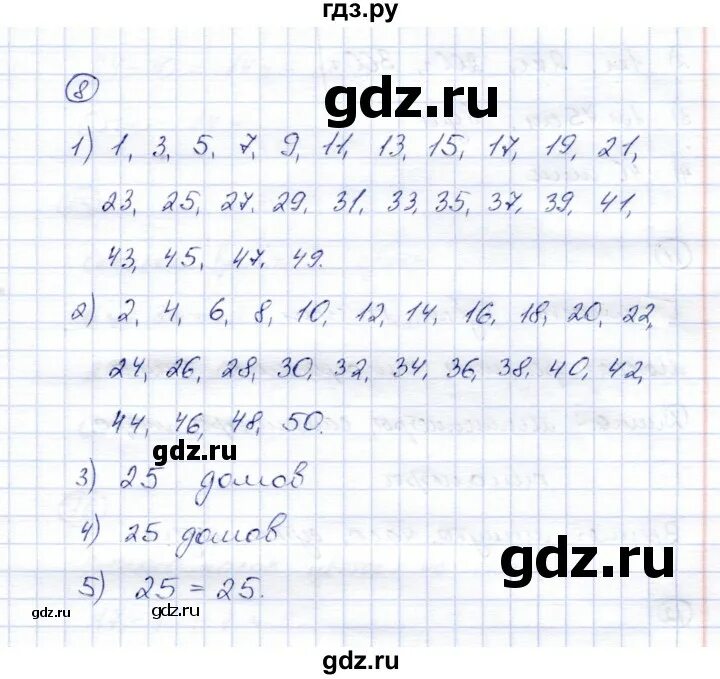 гдз.ру
8
gdz.ru
1) 1, 3, 5, 7, 9, 11, 13, 15, 17, 19, 21,
23, 25, 27. 29, 31, 33, 35, 37, 39, 41,
43, 45, 47, 49.
2) 2, 4, 6, 8, 10, 12, 14, 16, 18, 20, 22,
24, 26, 28, 30, 32, 34, 36, 38, 40, 42,
44, 46, 48, 50.
gdz.ru
3) 25 домов
4) 25 домов
gdz.ru
5) 25 = 25.
gdz.ru
gdz.ru
gdz.ru